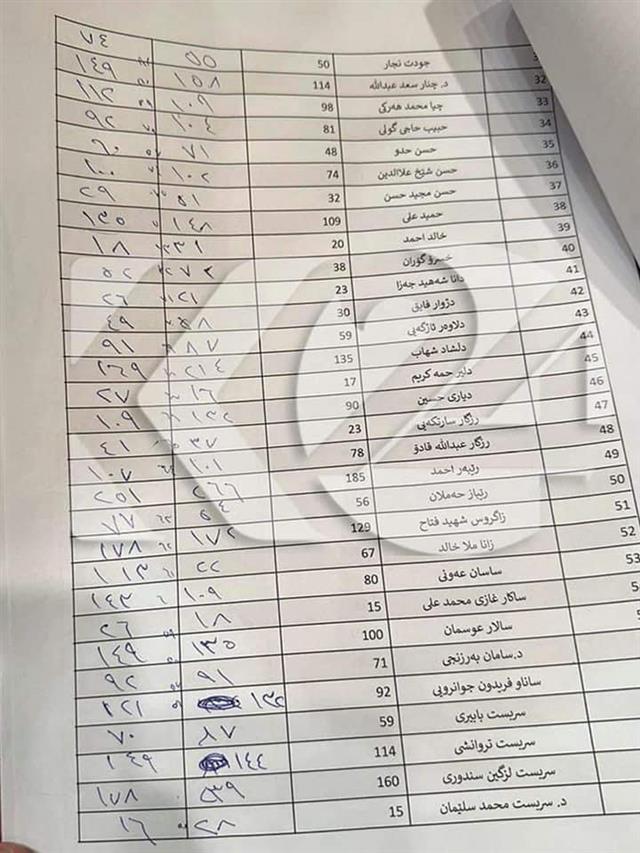 جودت نجار 50 ٥٥ ٧٤
32 د. چنار سعد عبدالله 114 ١٥٨ ١٤٩
33 جيا محمد هەركى 98 ١٠٩ ١١٢
34 حبيب حاجى گولى 81 ١٠٤ ٩٢
35 حسن حدو 48 ٧١ ٦٠
36 حسن شێخ علاالدين 74 ١٠٢ ١٠٠
37 حسن مجيد حسن 32 ٥١ ٣٩
38 حميد على 109 ١٤٨ ١٣٥
39 خالد احمد 20 ٣١ ١٨
40 خسرو گۆران 38 ٧٢ ٥٢
41 دانا شەهید جەزا 23 ٢١ ٢٦
42 دژوار فايق 30 ٥٨ ٤٩
43 دلاوەر ئازگەیی 59 ٨٧ ٩١
44 دلشاد شهاب 135 ٢١٤ ١٦٩
45 دلير حمه كريم 17 ١٦ ٢٧
46 ديارى حسين 90 ١٣٢ ١٠٩
47 رزگار سارتكەیی 23 ٣٧ ٤١
48 رزگار عبدالله قادۆ 78 ١٠١ ١٠٧
49 رێبەر احمد 185 ٢٦٦ ٢٥١
50 رێباز حەملان 56 ٥٤ ٧٧
51 زاگروس شهيد فتاح 129 ١٧٢ ١٧٨
52 زانا ملا خالد 67 ٢٢ ١١٣
53 ساسان عەونی 80 ١٠٩ ١٤٣
ساكار غازى محمد على 15 ١٨ ٢٦
سالار عوسمان 100 ١٣٥ ١٤٩
د.سامان بەرزنجی 71 ٩١ ٩٢
ساناو فريدون جوانرویی 92 ١٣٢ ٢٢١
سربست بابيرى 59 ٨٧ ٧٠
سربست تروانشى 114 ١٤٤ ١٤٩
سربست لزگين سندورى 160 ٥٣٩ ١٧٨
د. سربست محمد سلێمان 15 ٢٨ ١٦